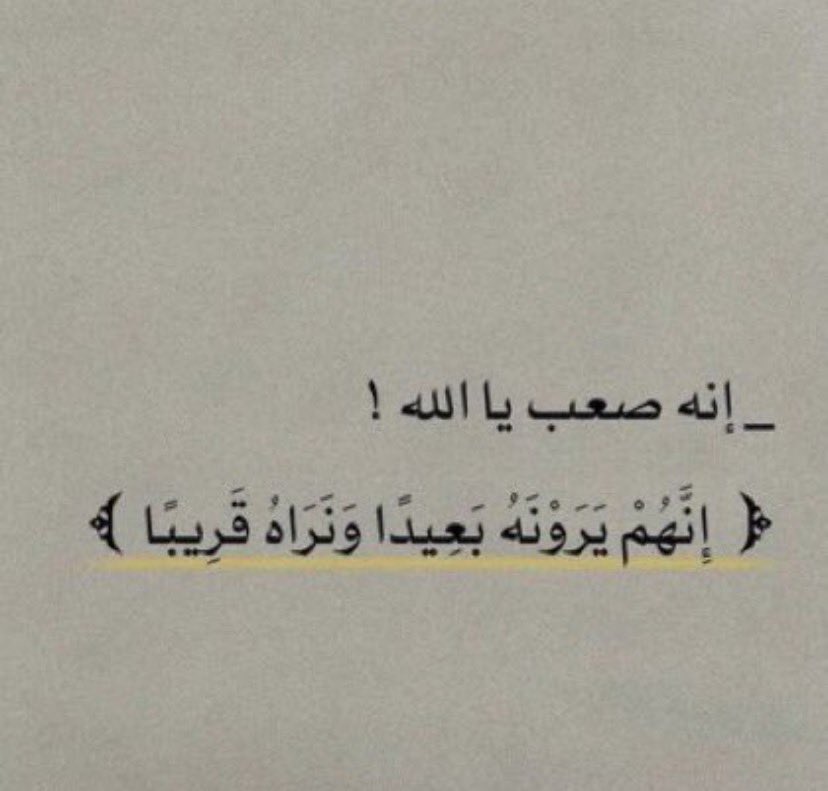 _ إنه صعب يا الله !
﴿ إِنَّهُمْ يَرَوْنَهُ بَعِيدًا وَنَرَاهُ قَرِيبًا ﴾